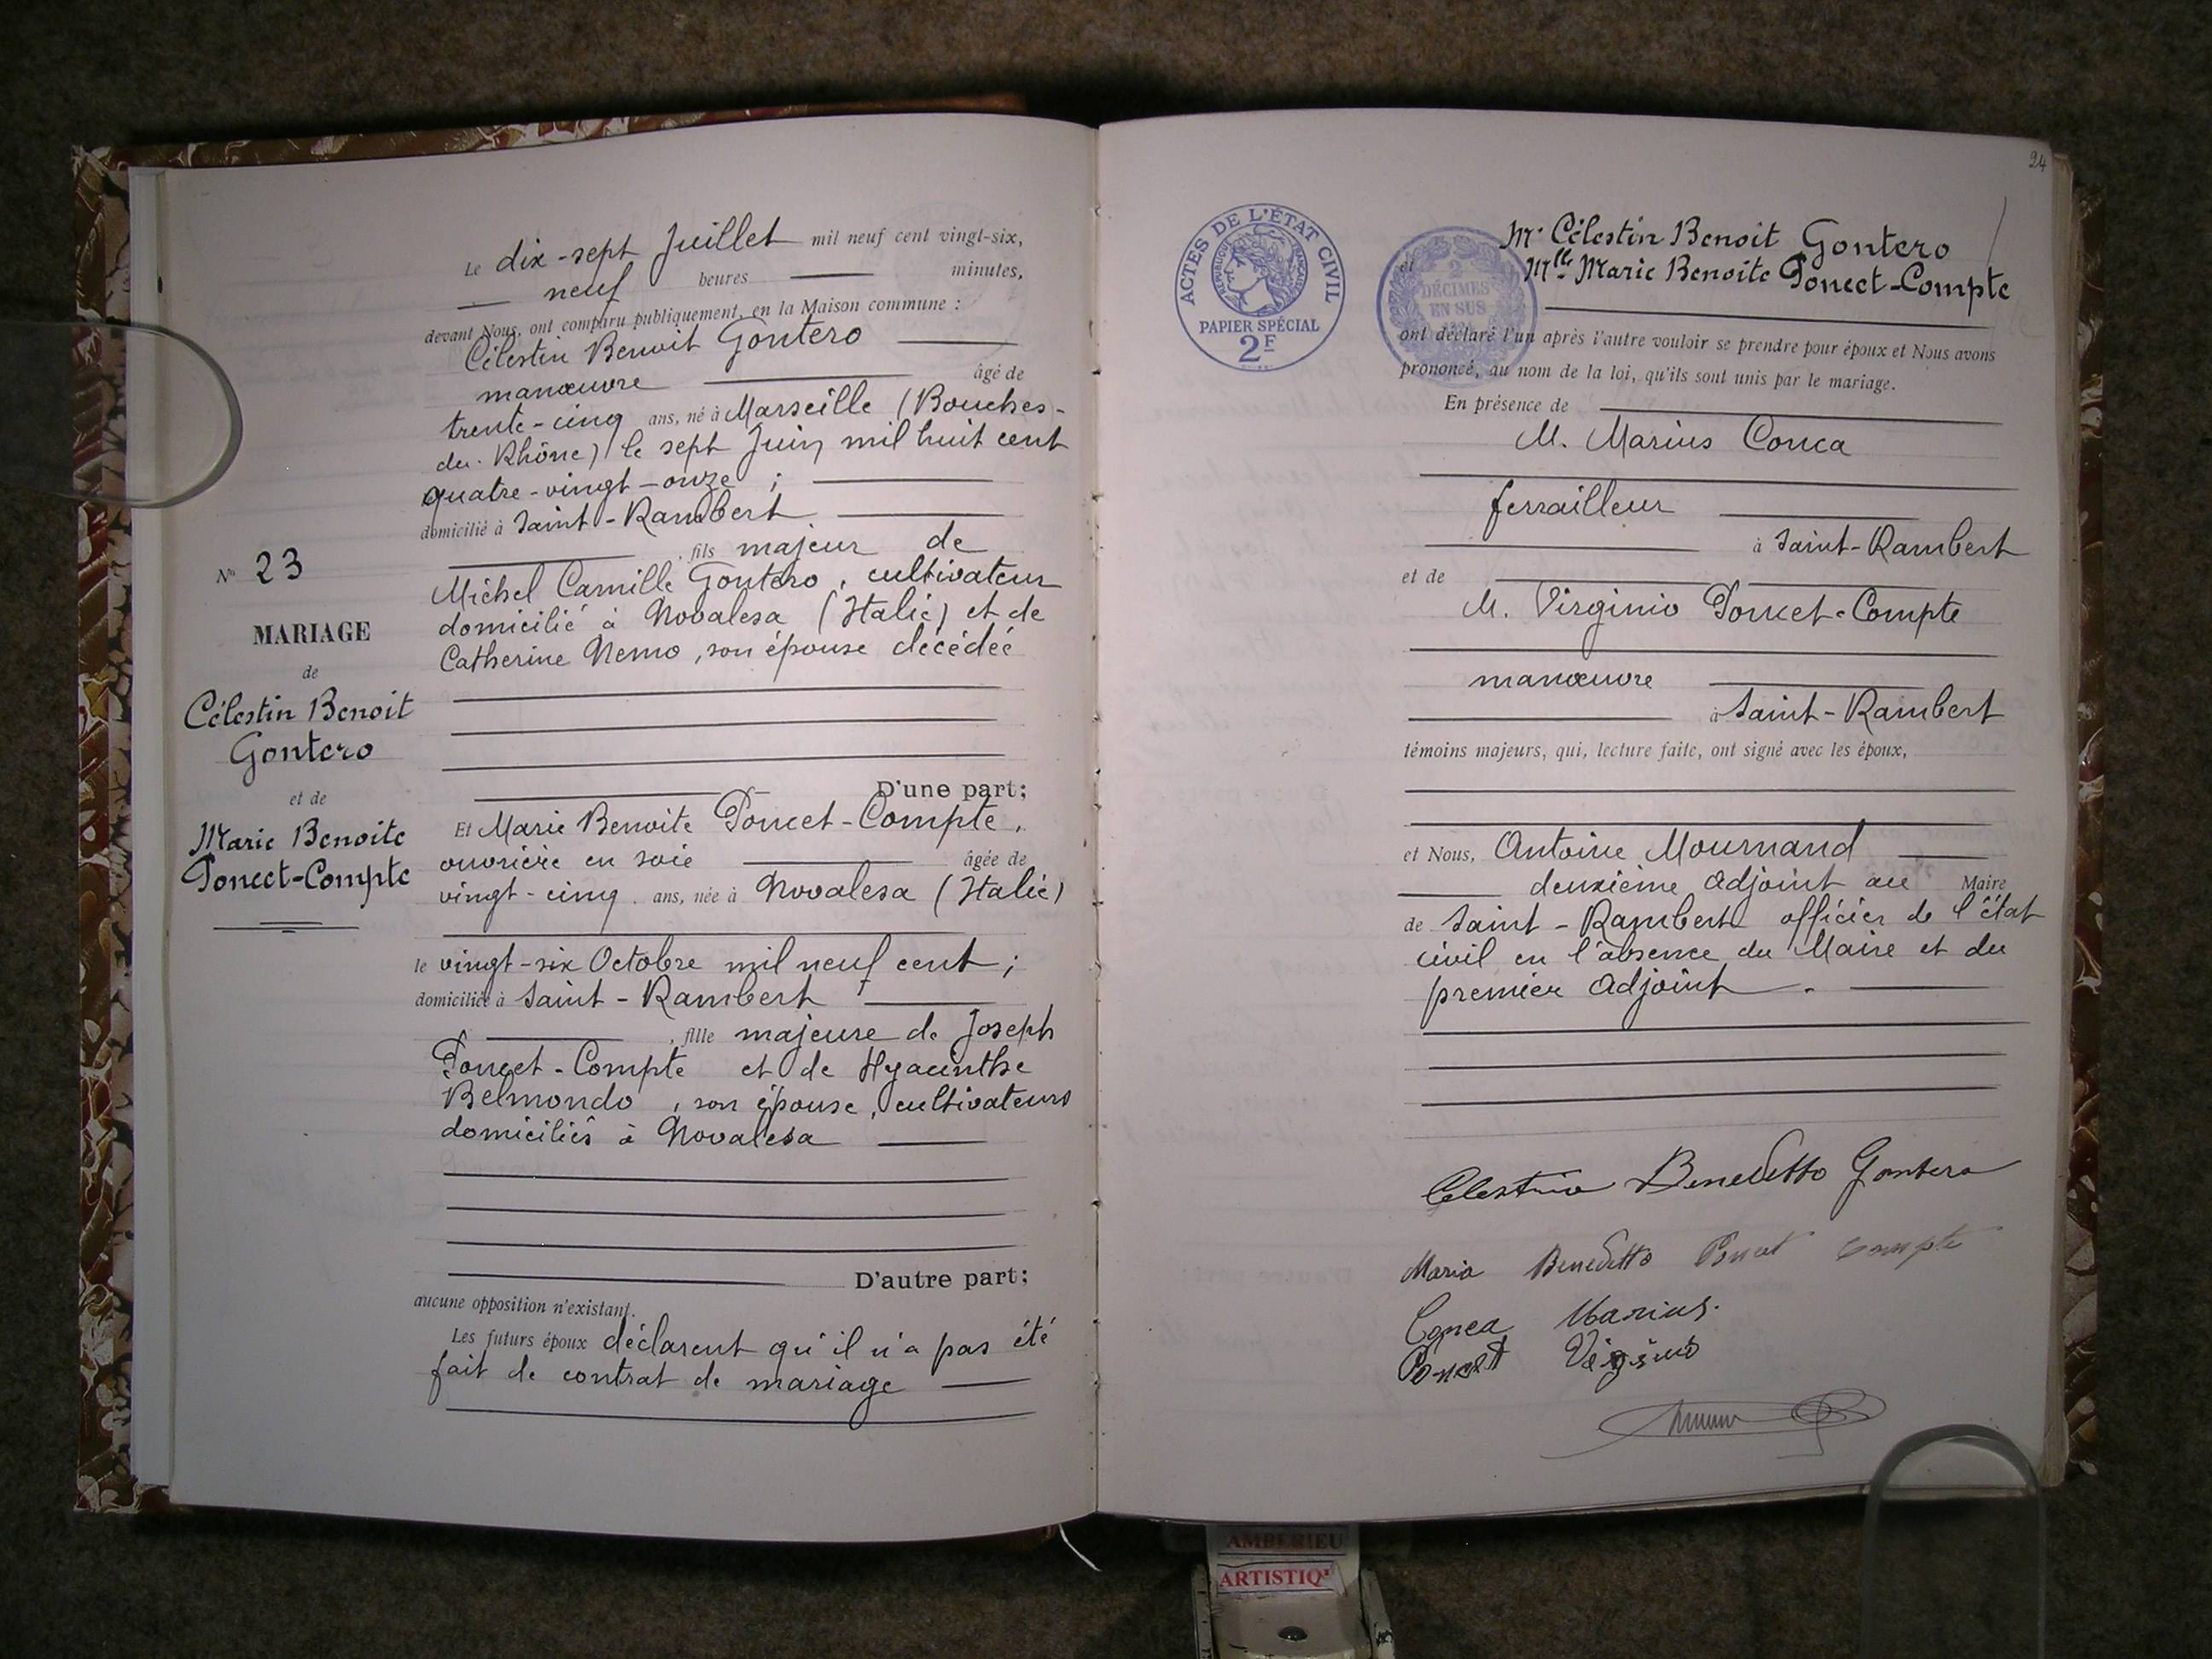 Le dix-sept Juillet mil neuf cent vingt-six,
neuf heures minutes,
devant Nous, ont comparu publiquement, en la Maison commune :
Célestin Benoit Gontero
manœuvre âgé de
trente-cinq ans, né à Marseille (Bouches-
du-Rhône) le sept Juin mil huit cent
quatre-vingt-onze ;
domicilié à Saint-Rambert
, fils majeur de
Michel Camille Gontero, cultivateur
domicilié à Novalesa (Italie) et de
Catherine Nemo, son épouse décédée
D'une part;
Et Marie Benoite Poncet-Compte,
ouvrière en soie âgée de
vingt-cinq ans, née à Novalesa (Italie)
le vingt-six Octobre mil neuf cent ;
domiciliée à Saint-Rambert
, fille majeure de Joseph
Poncet-Compte et de Hyacinthe
Belmondo, son épouse, cultivateurs
domiciliés à Novalesa
D'autre part;
aucune opposition n'existant.
Les futurs époux déclarent qu'il n'a pas été
fait de contrat de mariage
N° 23
MARIAGE
de
Célestin Benoit
Gontero
et de
Marie Benoite
Poncet-Compte
24
ACTES DE L'ÉTAT CIVIL
RÉPUBLIQUE FRANÇAISE
PAPIER SPÉCIAL
2F
2
DÉCIMES
EN SUS
Mr Célestin Benoit Gontero
et Mlle Marie Benoite Poncet-Compte
ont déclaré l'un après l'autre vouloir se prendre pour époux et Nous avons
prononcé, au nom de la loi, qu'ils sont unis par le mariage.
En présence de
M. Marius Conca
ferrailleur
à Saint-Rambert
et de
M. Virginio Poncet-Compte
manœuvre
à Saint-Rambert
témoins majeurs, qui, lecture faite, ont signé avec les époux,
et Nous, Antoine Mournand
deuxième Adjoint au Maire
de Saint-Rambert officier de l'état
civil en l'absence du Maire et du
premier Adjoint.
Celestino Benedetto Gontero
Maria Benedetto Poncet Compte
Conca Marius.
Poncet Virginio
AMBERIEU
ARTISTIQ